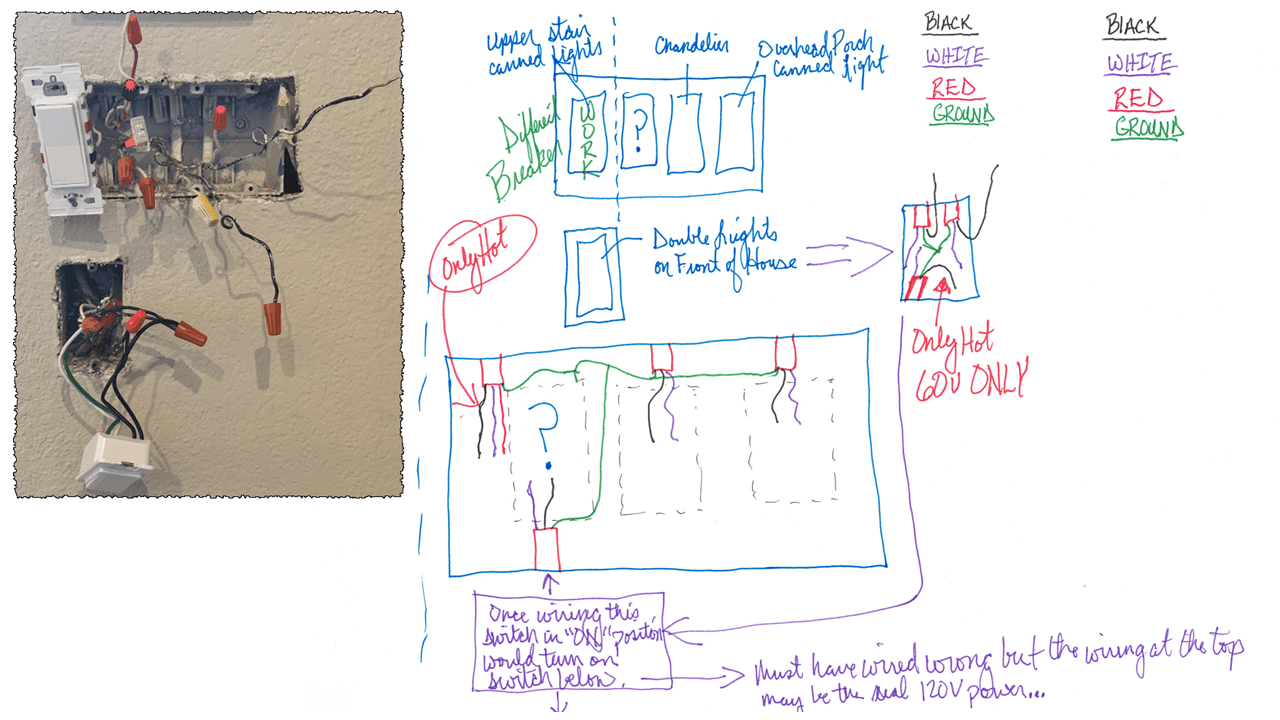 Upper stair
canned lights
Chandelier
Overhead Porch
Canned light
BLACK
WHITE
RED
GROUND
BLACK
WHITE
RED
GROUND
Different
Breaker
WORK
?
Only Hot
Double lights
on Front of House
Only Hot
60V ONLY
?
Once wiring this
switch in "ON" position
would turn on
switch below.
Must have wired wrong but the wiring at the top
may be the real 120V power...